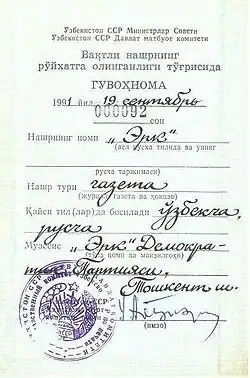 Ўзбекистон ССР Министрлар Совети
Ўзбекистон ССР Давлат матбуот комитети
Вақтли нашрнинг
рўйхатга олинганлиги тўғрисида
ГУВОҲНОМА
1991 йил. 19 сентябрь
000092
сон
Нашрнинг номи „Эрк“
(асл нусха тилида ва унинг
русча таржимаси)
Нашр тури газета
(журнал, газета ва ҳоказо)
Қайси тил(лар)да босилади ўзбекча,
русча
Муассис „Эрк“ Демокра-
(тўла номи ва манзилгоҳи)
тик Партияси,
Тошкент ш.
(имзо)